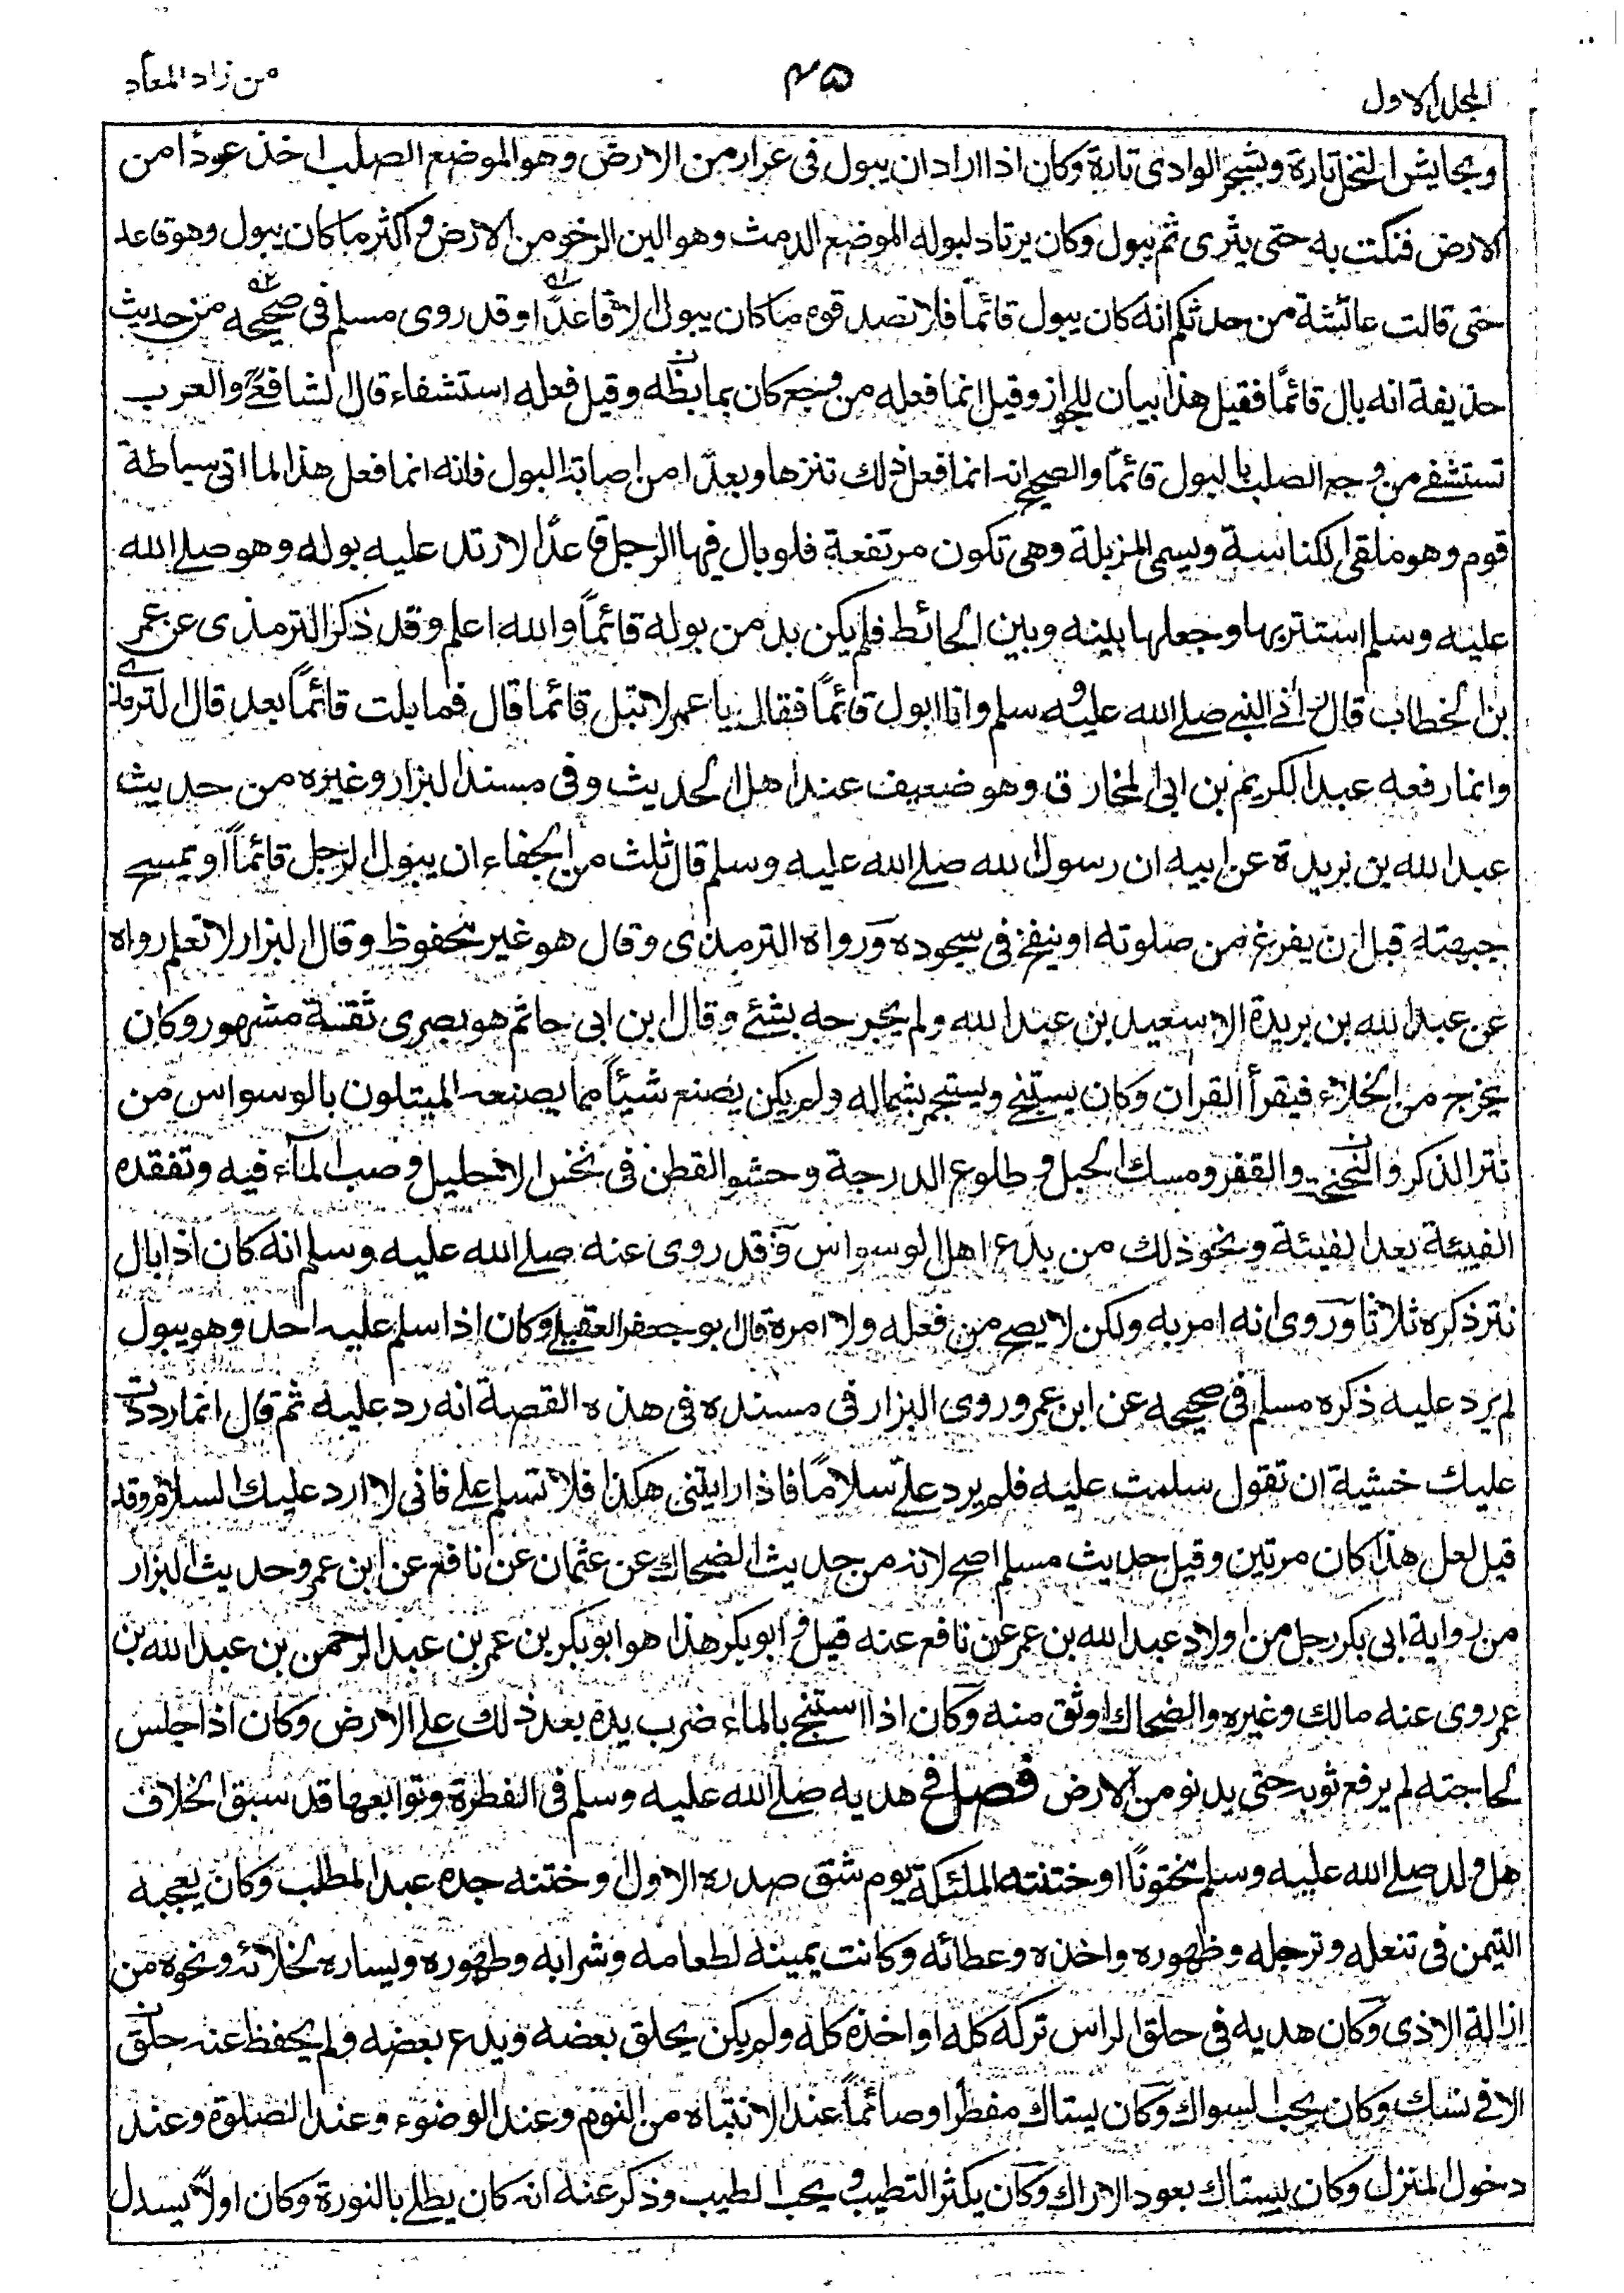 المجلد الاول
٤٥
من زاد المعاد
وبحايش النخل تارة وبشجر الوادى تارة وكان اذا اراد ان يبول فى عرار من الارض وهو الموضع الصلب اخذ عودًا من
الارض فنكت به حتى يثرى ثم يبول وكان يرتاد لبوله الموضع الدمث وهو اللين الرخو من الارض و اكثر ما كان يبول وهو قاعد
حتى قالت عائشة من حدثكم انه كان يبول قائماً فلا تصدقوه ما كان يبول الا قاعدًا وقد روى مسلم فى صحيحه من حديث
حذيفة انه بال قائمًا فقيل هذا بيان للجواز وقيل انما فعله من وجع كان بمابظه وقيل فعله استشفاء قال الشافعى والعرب
تستشفے من وجع الصلب بالبول قائماً والصحيح انه انما فعل ذلك تنزها وبعدًا من اصابة البول فانه انما فعل هذا لما اتى سباطة
قوم وهو ملقى الكناسة ويسمى المزبلة وهى تكون مرتفعة فلو بال فيها الرجل قاعدًا لارتد عليه بوله وهو صلے الله
عليه وسلم استتر بها وجعلها بينه وبين الحائط فلم يكن بد من بوله قائماً والله اعلم وقد ذكر الترمذى عن عمر
بن الخطاب قال رانے النبے صلے الله عليه وسلم وانا ابول قائماً فقال يا عمر لا تبل قائما قال فما بلت قائماً بعد قال الترمذے
وانما رفعه عبد الكريم بن ابى المخارق وهو ضعيف عند اهل الحديث وفى مسند البزار وغيره من حديث
عبد الله بن بريدة عن ابيه ان رسول الله صلے الله عليه وسلم قال ثلث من الجفاء ان يبول الرجل قائماً او يمسح
جبهته قبل ان يفرغ من صلوته او ينفخ فى سجوده ورواه الترمذى وقال هو غير محفوظ وقال البزار لا نعلم رواه
عن عبد الله بن بريدة الا سعيد بن عبد الله ولم يجرحه بشئے وقال ابن ابى حاتم هو بصرى ثقة مشهور وكان
يخرج من الخلاء فيقرأ القران وكان يستنجے ويستجمر بشماله ولم يكن يصنع شيئاً مما يصنعه المبتلون بالوسواس من
نتر الذكر والنحنحة والقفز ومسك الحبل و طلوع الدرجة وحشو القطن فى نخس الاحليل وصب الماء فيه وتفقده
الفيئة بعد الفيئة ونحو ذلك من بدع اهل الوسواس وقد روى عنه صلے الله عليه وسلم انه كان اذا بال
نتر ذكره ثلاثا وروى انه امر به ولكن لا يصح من فعله ولا امره قال ابو جعفر العقيلے وكان اذا سلم عليه احد وهو يبول
لم يرد عليه ذكره مسلم فى صحيحه عن ابن عمر وروى البزار فى مسنده فى هذه القصة انه رد عليه ثم قال انما رددت
عليك خشية ان تقول سلمت عليه فلم يرد علے سلامًا فاذا رايتنى هكذا فلا تسلم علے فانى لا ارد عليك السلام وقد
قيل لعل هذا كان مرتين وقيل حديث مسلم اصح لانه من حديث الضحاك عن عثمان عن نافع عن ابن عمر وحديث البزار
من رواية ابى بكر رجل من اولاد عبد الله بن عمر عن نافع عنه قيل و ابو بكر هذا هو ابو بكر بن عمر بن عبد الرحمن بن عبد الله بن
عمر روى عنه مالك وغيره والضحاك اوثق منه وكان اذا استنجے بالماء ضرب يده بعد ذلك علے الارض وكان اذا جلس
لحاجته لم يرفع ثوبه حتى يدنو من الارض فصل فے هديه صلے الله عليه وسلم فى الفطرة وتوابعها قد سبق الخلاف
هل ولد صلے الله عليه وسلم مختونًا او ختنته الملئكة يوم شق صدره الاول او ختنه جده عبد المطلب وكان يعجبه
التيمن فى تنعله وترجله وطهوره واخذه وعطائه وكانت يمينه لطعامه وشرابه وطهوره ويساره لخلائه ونحوه من
ازالة الاذى وكان هديه فى حلق الراس تركه كله او اخذه كله ولم يكن يحلق بعضه ويدع بعضه ولم يحفظ عنه حلق
الا فے نسك وكان يحب السواك وكان يستاك مفطرًا وصائماً عند الانتباه من النوم وعند الوضوء وعند الصلوة وعند
دخول المنزل وكان يستاك بعود الاراك وكان يكثر التطيب و يحب الطيب وذكر عنه انه كان يطلے بالنورة وكان اولًا يسدل